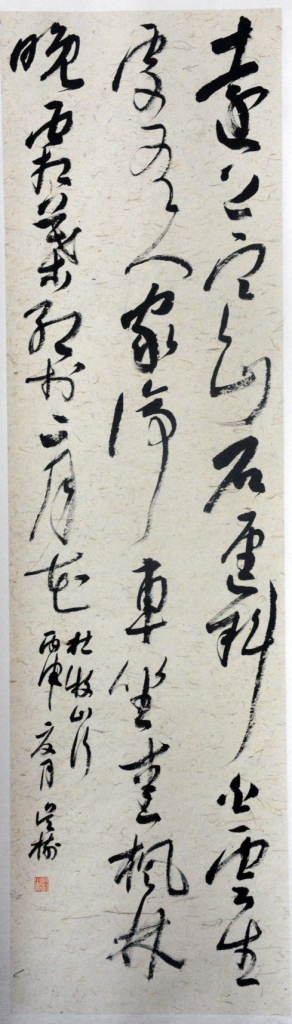 遠上寒山石徑斜白雲生
處有人家停車坐愛楓林
晚霜葉紅於二月花
杜牧山行
丙申夏月